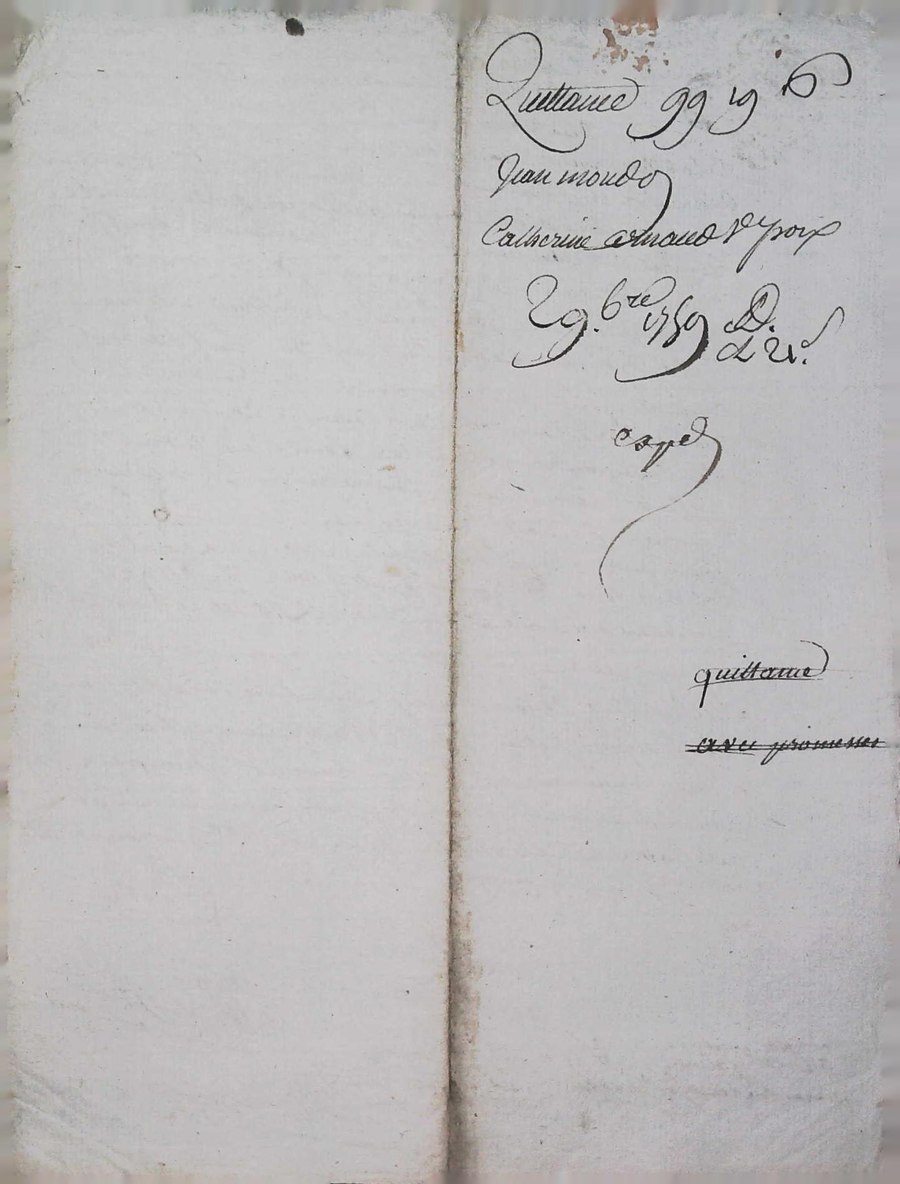 Quittance 99 19
Jean mondo
Catherine arnaud Ve poix
29. bre 1759
exped
quittance
avec promesses